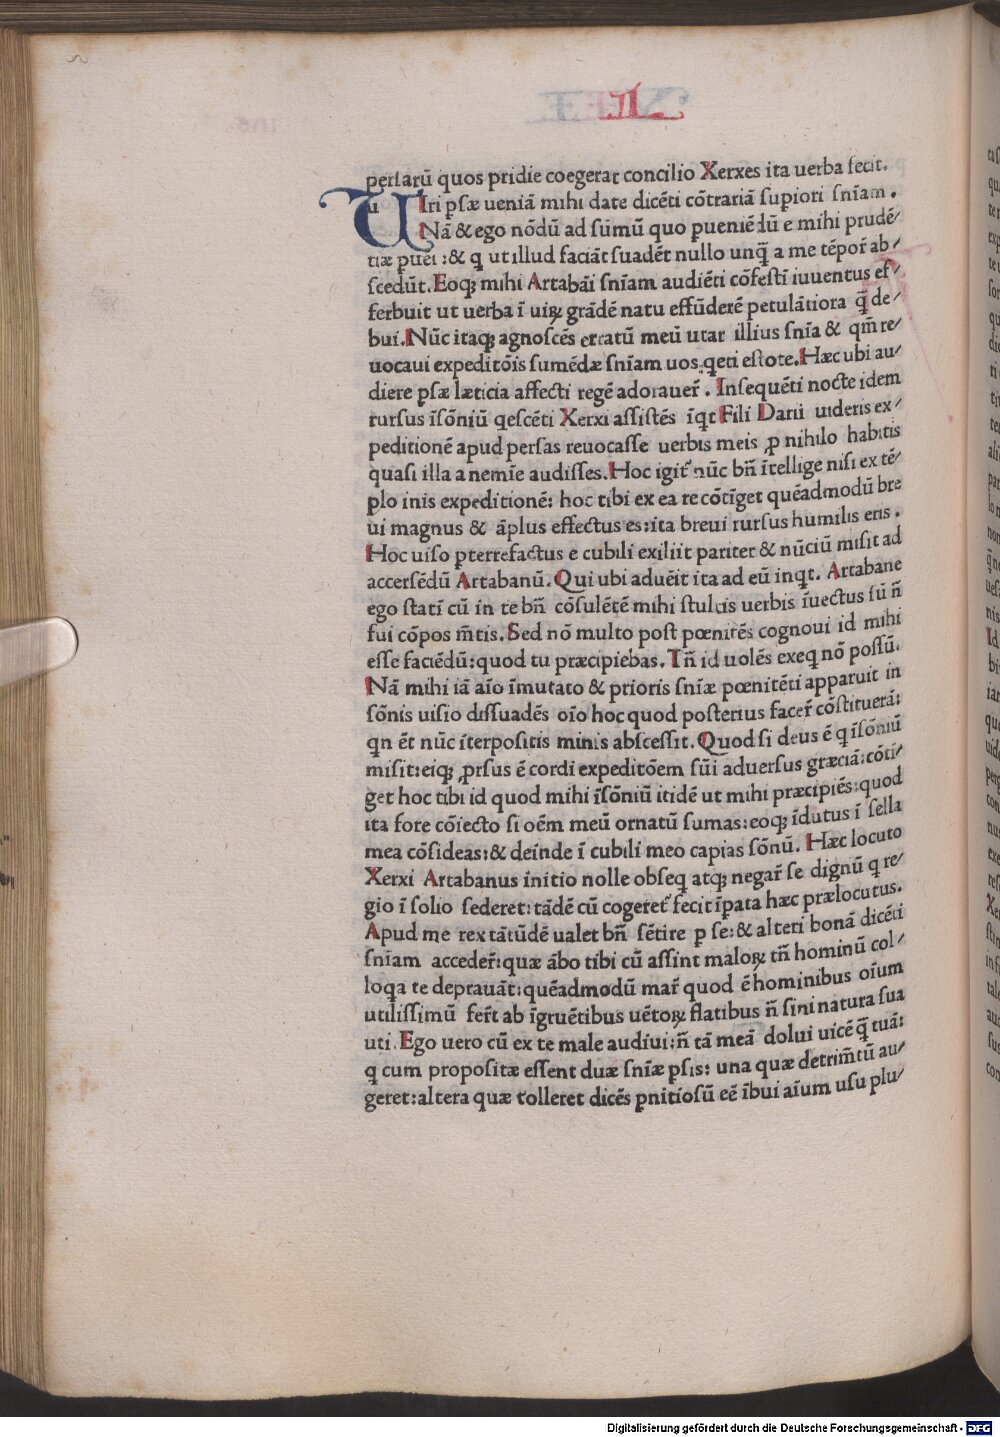 L
persarū quos pridie coegerat concilio Xerxes ita uerba fecit.
UIri psæ ueniā mihi date dicēti cōtrariā supiori sniam.
Nā & ego nōdū ad sūmū quo pueniēdū e mihi prudē⸝
tiæ puēi:& q ut illud faciāt suadēt nullo unq̄ a me tēpor̄ ab⸝
scedūt. Eoq; mihi Artabāi snīam audiēti cōfestī iuuentus ef⸝
ferbuit ut uerba ī uiꝝ grādē natu effūderē petulātiora q̄ de⸝
bui. Nūc itaq; agnoscēs erratū meū utar illius snīa & qm̄ re⸝
uocaui expeditōis sumēdæ snīam uos qeti estote. Hæc ubi au⸝
diere psæ læticia affecti regē adorauer̄. Insequēti nocte idem
rursus īsōniū qescēti Xerxi assistēs īqt Fili Darii uideris ex⸝
peditionē apud persas reuocasse uerbis meis ꝓ nihilo habitis
quasi illa a nemīe audisses. Hoc igit̄ nūc bn̄ ītellige nisi ex tē⸝
plo inis expeditionē: hoc tibi ex ea re cōtīget quēadmodū bre
ui magnus & āplus effectus es:ita breui rursus humilis eris.
Hoc uiso pterrefactus e cubili exiliit pariter & nūciū misit ad
accersēdū Artabanū. Qui ubi aduēit ita ad eū inqt. Artabane
ego statī cū in te bn̄ cōsulētē mihi stultis uerbis īuectus sū n̄
fui cōpos m̄tis. Sed nō multo post pœnitēs cognoui id mihi
esse faciēdū:quod tu præcipiebas. Tn̄ id uolēs exeq nō possū.
Nā mihi iā aīo īmutato & prioris snīæ pœnitēti apparuit in
sōnis uisio dissuadēs oīo hoc quod posterius facer̄ cōstituerā:
qn ēt nūc īterpositis minis abscessit. Quod si deus ē q īsōniū
misit:eiq; ꝓrsus ē cordi expeditōem sūi aduersus græciā:cōti⸝
get hoc tibi id quod mihi īsōniū itidē ut mihi præcipiēs:quod
ita fore cōiecto si oēm meū ornatū sumas:eoq; īdutus ī sella
mea cōsideas:& deīnde ī cubili meo capias sōnū. Hæc locuto
Xerxi Artabanus initio nolle obseq atq; negar̄ se dignū q re⸝
gio ī solio sederet:tādē cū cogeret̄ fecit īpata hæc prælocutus.
Apud me rex tātūdē ualet bn̄ sētire p se:& alteri bonā dicēti
snīam acceder̄:quæ ābo tibi cū assint maloꝝ tn̄ hominū col⸝
loqa te deprauāt:quēadmodū mar̄ quod ē hominibus oīum
utilissimū fer̄t ab īgruētibus uētoꝝ flatibus n̄ sini natura sua
uti. Ego uero cū ex te male audiui:n̄ tā meā dolui uicē q̄ tuā:
q cum propositæ essent duæ snīæ psis: una quæ detrim̄tū au⸝
geret:altera quæ tolleret dicēs pnitiosū eē ībui aīum usu plu⸝
Digitalisierung gefördert durch die Deutsche Forschungsgemeinschaft - DFG